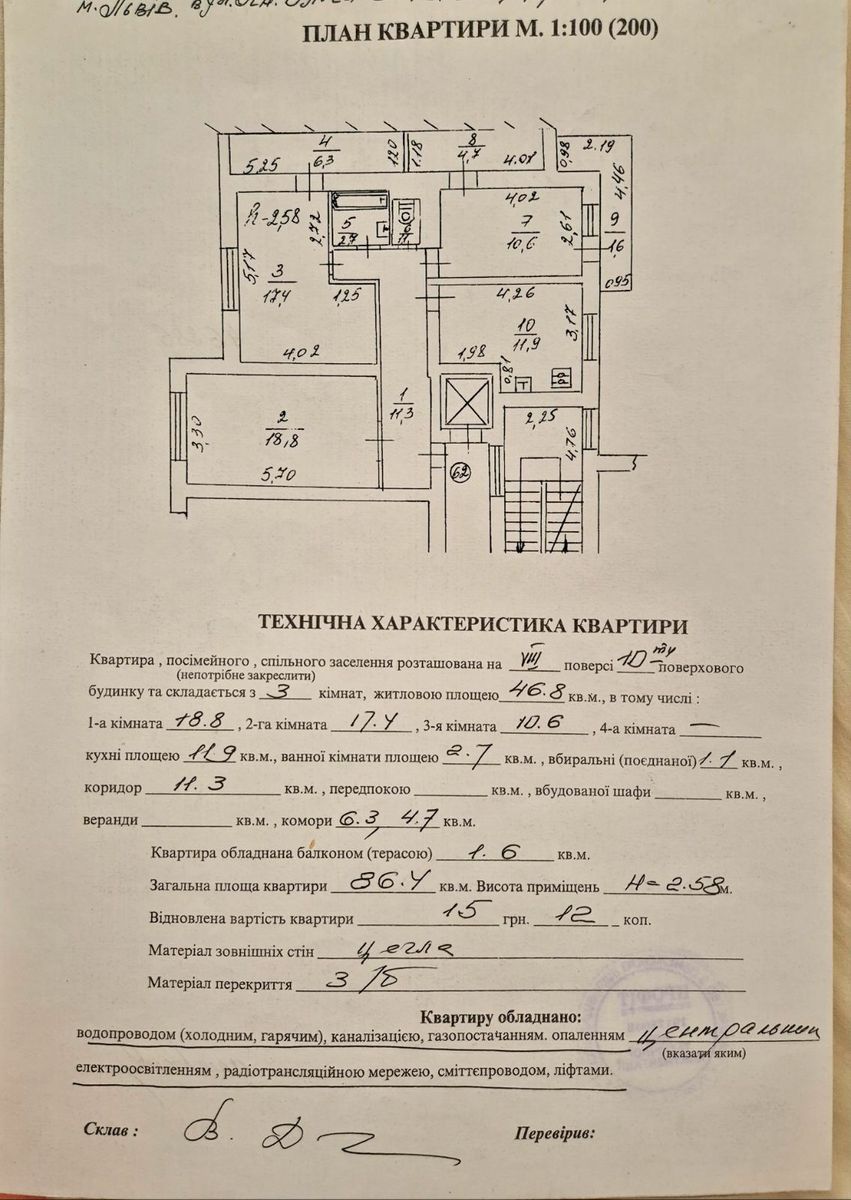 м. Львів, вул.
ПЛАН КВАРТИРИ М. 1:100 (200)
4
6,3
5.25
120
1.18
8
4.7
4.07
0,98
2.19
4,46
h-2,58
2,72
5
2.7
4,02
7
10,6
2,61
9
1.6
5,17
3
17,4
1,25
4,02
0,95
4,26
10
11,9
3,17
1,98
0,81
1
11,3
2
18,8
3,30
5,70
2,25
4,76
62
ТЕХНІЧНА ХАРАКТЕРИСТИКА КВАРТИРИ
Квартира , посімейного , спільного заселення розташована на VIII поверсі 10-ти поверхового
(непотрібне закреслити)
будинку та складається з 3 кімнат, житловою площею 46.8 кв.м., в тому числі :
1-а кімната 18.8 , 2-га кімната 17.4 , 3-я кімната 10.6 , 4-а кімната —
кухні площею 11.9 кв.м., ванної кімнати площею 2.7 кв.м. , вбиральні (поєднаної) 1.1 кв.м. ,
коридор 11.3 кв.м. , передпокою кв.м. , вбудованої шафи кв.м. ,
веранди кв.м. , комори 6.3, 4.7 кв.м.
Квартира обладнана балконом (терасою) 1.6 кв.м.
Загальна площа квартири 86.4 кв.м. Висота приміщень H=2.58 м.
Відновлена вартість квартири 15 грн. 12 коп.
Матеріал зовнішніх стін цегла
Матеріал перекриття З/б
Квартиру обладнано:
водопроводом (холодним, гарячим), каналізацією, газопостачанням. опаленням центральним
(вказати яким)
електроосвітленням , радіотрансляційною мережею, сміттєпроводом, ліфтами.
Склав :
Перевірив: